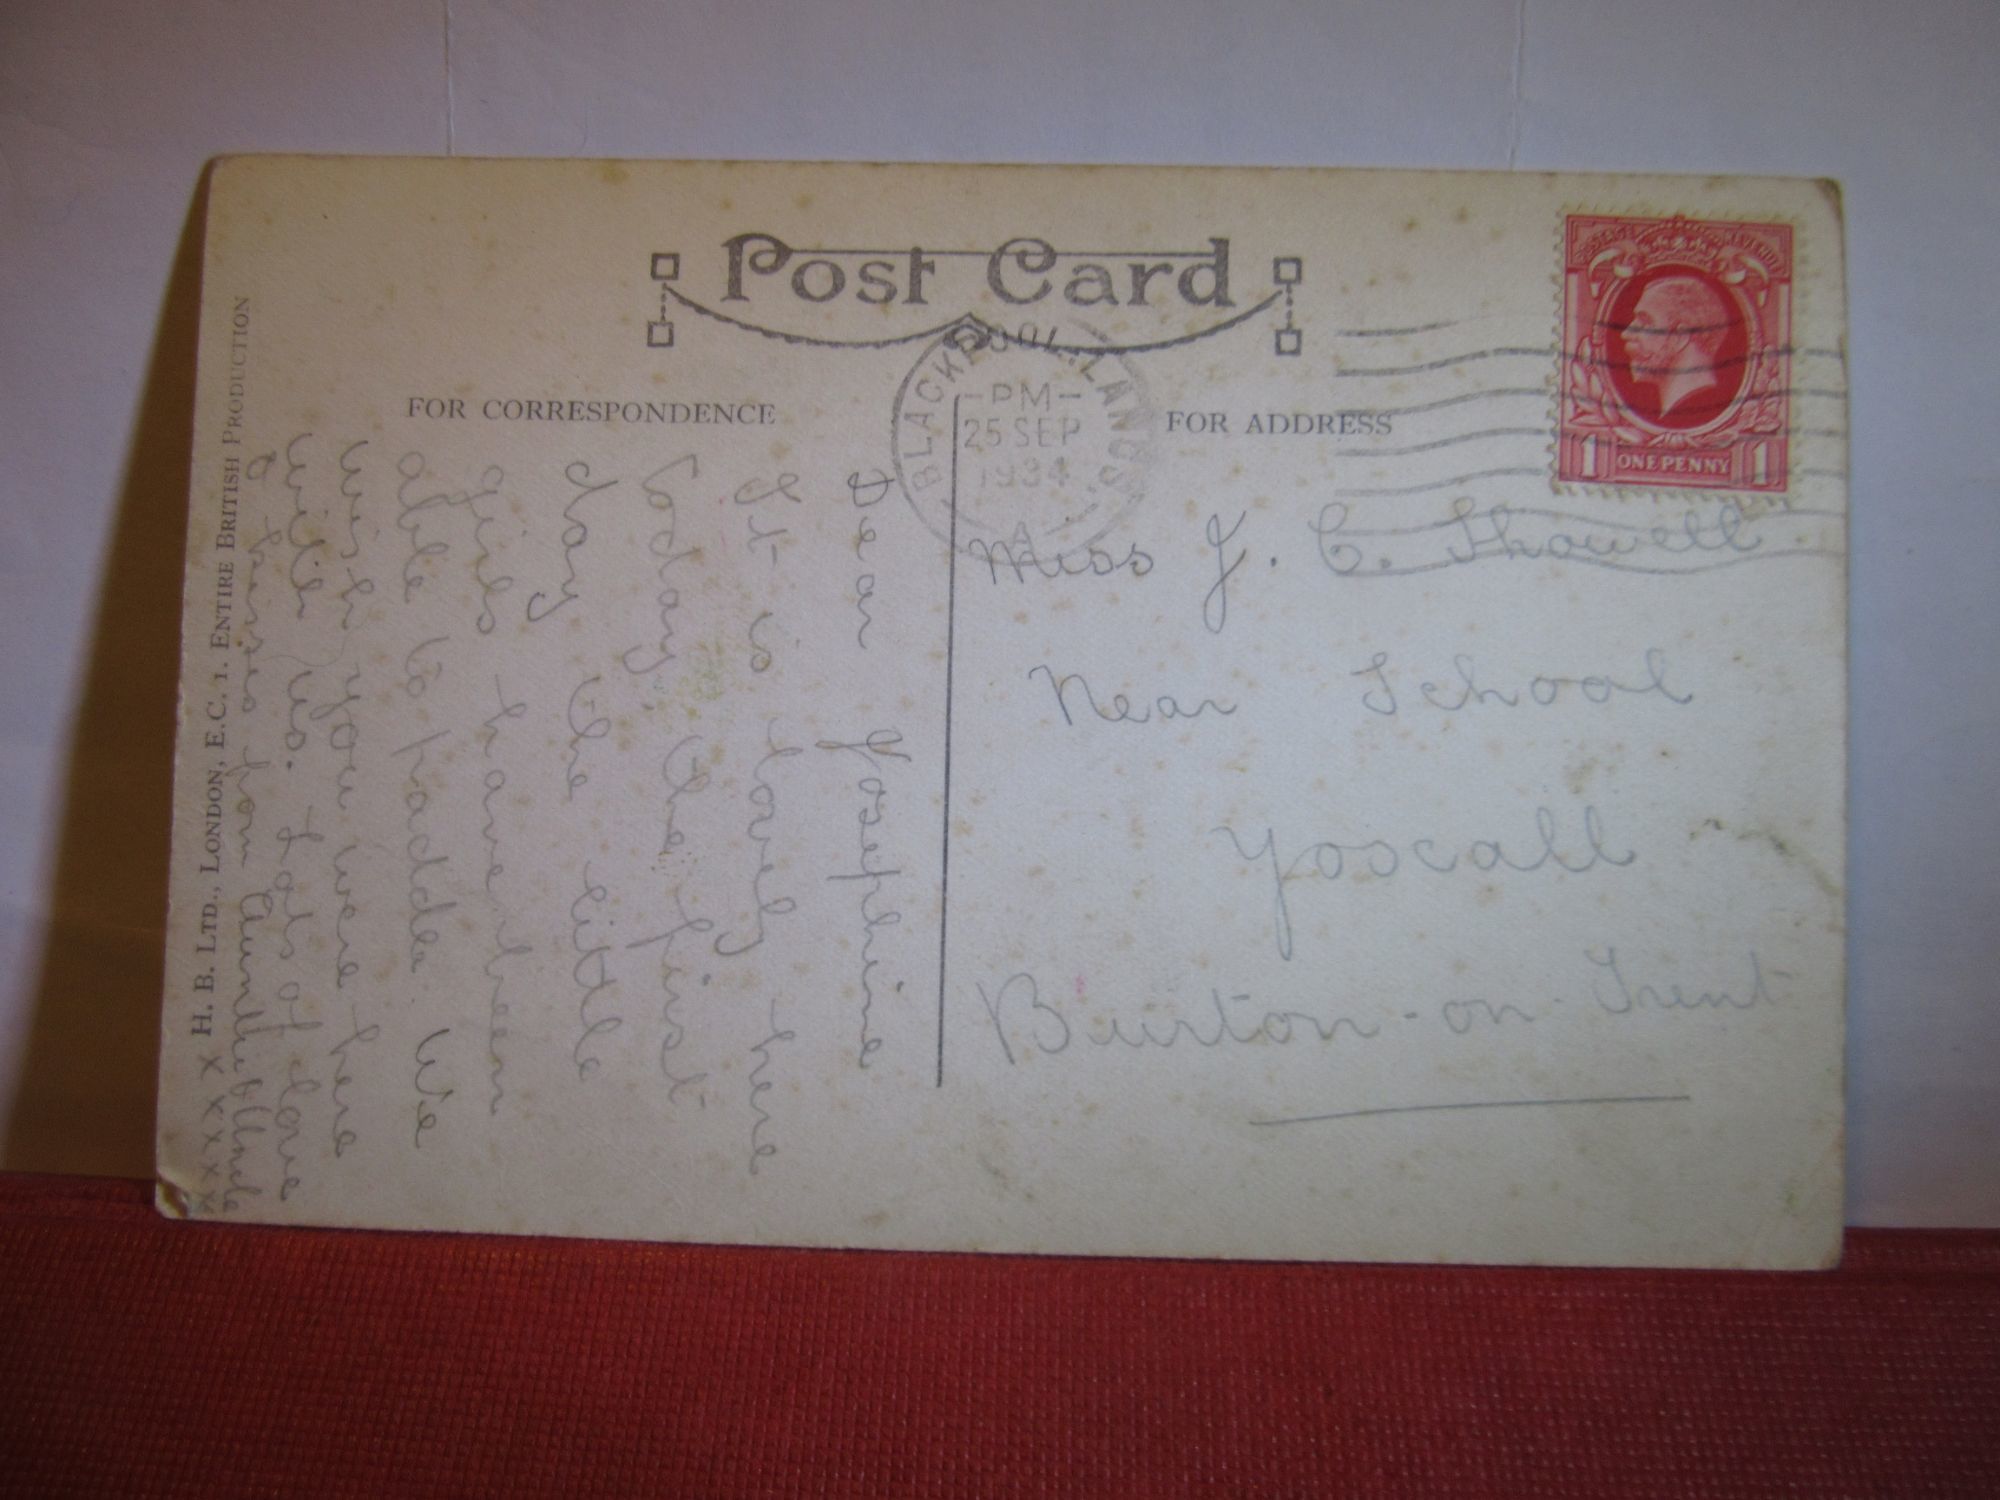 Post Card
FOR CORRESPONDENCE
FOR ADDRESS
BLACKPOOL. LANCS.
-PM-
25 SEP
1934
A
POSTAGE REVENUE
1 ONE PENNY 1
Dear Josephine
It is lovely here
today, the first
day the little
girls have been
able to paddle. We
wish you were here
with us. Lots of love
& kisses from Aunti & Uncle
x x x x x
Miss J. C. Showell
Near School
Yoxall
Burton-on-Trent
H. B. LTD., LONDON, E.C. 1. ENTIRE BRITISH PRODUCTION